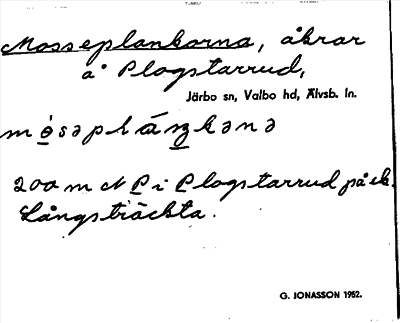 Mosseplankorna, åkrar
å Plogstarrud,
Järbo sn, Valbo hd, Älvsb. ln.
200 m N P i Plogstarrud på ek.
Långsträckta.
G. JONASSON 1952.